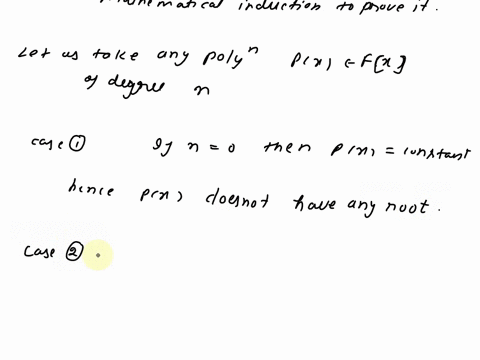 mathematical induction to prove it.
Let us take any polyⁿ p(x) ∈ F[x]
of degree n
case ① If n = 0 then p(x) = constant
hence p(x) doesnot have any root.
Case ②